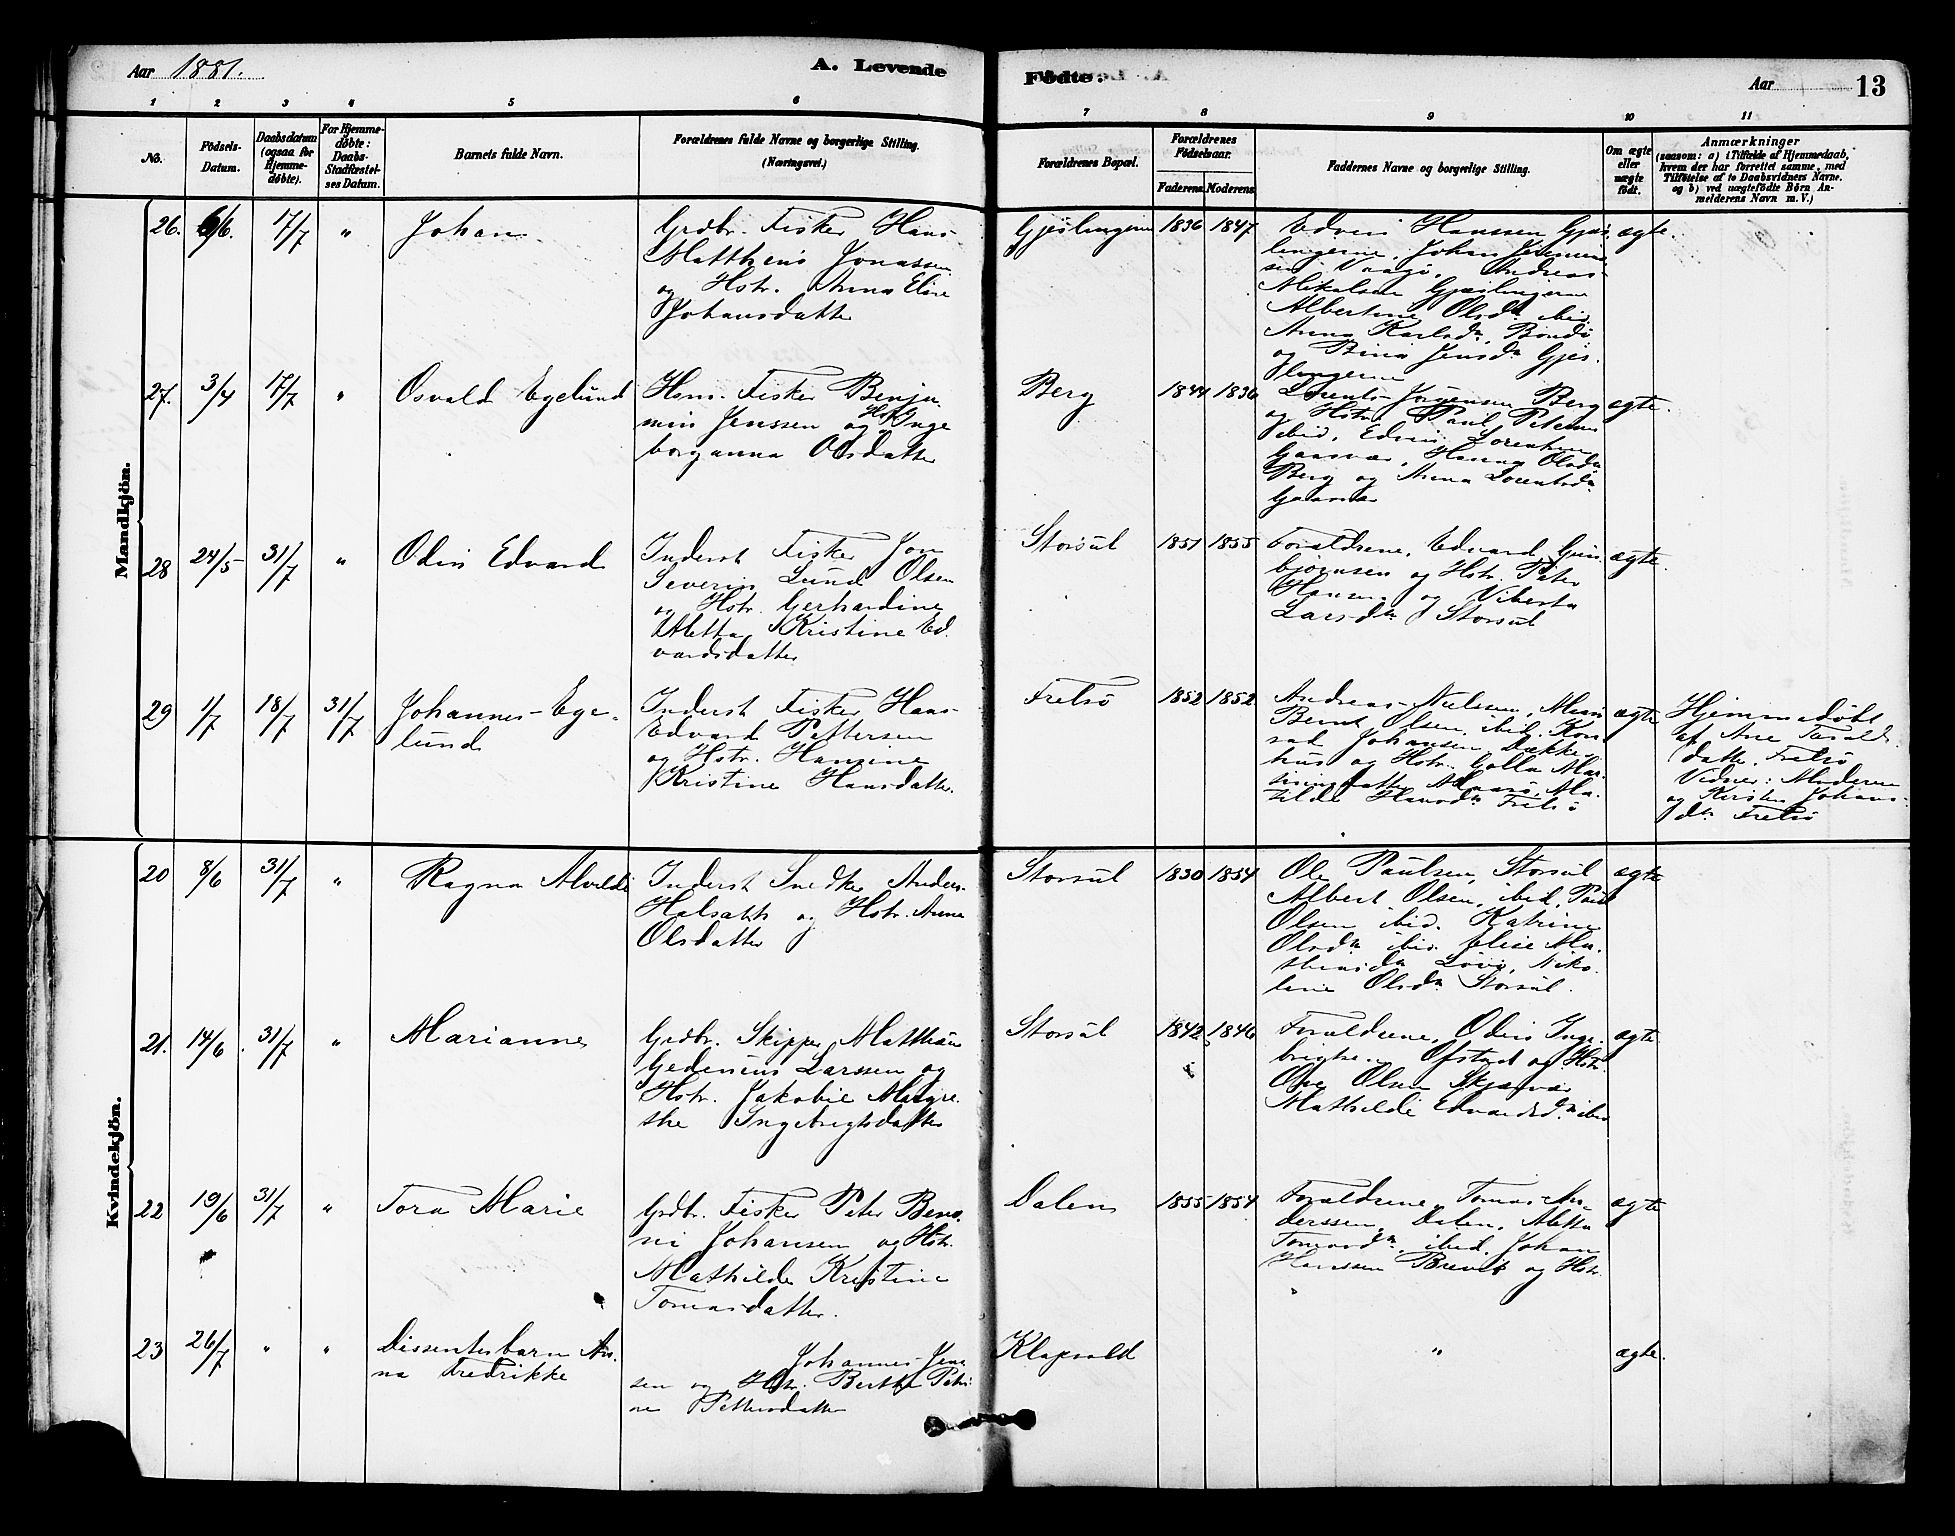 Aar 1881.
A. Levende
Fødte.
Aar
13
1 2 3 4 5 6 7 8 9 10 11
No.
Fødsels-
Datum.
Daabsdatum
(ogsaa for
Hjemme-
døbte).
For Hjemme-
døbte:
Daabs-
Stadfæstel-
ses Datum.
Barnets fulde Navn.
Forældrenes fulde Navne og borgerlige Stilling.
(Næringsvei.)
Forældrenes Bopæl.
Forældrenes
Fødselsaar.
Faderens. Moderens.
Faddernes Navne og borgerlige Stilling.
Om ægte
eller
uægte
født.
Anmærkninger
(saasom: a) i Tilfælde af Hjemmedaab,
hvem der har forrettet samme, med
Tilføielse af to Daabsvidners Navne.
og b) ved uægtefødte Børn An-
melderens Navn m. V.)
Mandkjøn.
26. 6/6. 17/7 "
Johan
Grdbr. Fisker Hans
Matthens Jonassen
og Hstr. Anna Eline
Johansdatter
Gjeslingerne
1836 1847
Edvin Hanssen Gjes-
lingerne, Johan
Andreas
Mikalsen Gjeslingerne
Albertine Olsdr ibid
Anna Karlsdr,
og Bina Jensdr Gjes-
lingerne
ægte.
27. 3/4 17/7 "
Osvald Egelund
Hsm. Fisker Benja-
min Jenssen og Hstr Inge
borganna Olsdatter
Berg
1844 1836
Lorents Jørgensen Berg
og Hstr. Paul Petersen
ibid, Edvin Lorentsen
Gaasvær, Hanna Olsdr
Berg og Anna Lorentsdr
Gaasvær
ægte.
28 24/5 31/7 "
Odin Edvard
Inderst Fisker Jon
Severin Lund Olsen
og Hstr. Gerhardine
Aletta Kristine Ed-
vardsdatter
Storsul
1851 1855
Forældrene, Edvard Gun-
bjørnsen og Hstr. Peter
Hansen og Viberta
Larsdr Storsul
ægte.
29 1/7 18/7 31/7
Johannes Ege-
lund
Inderst Fisker Hans
Edvard Pettersen
og Hstr. Hansine
Kristine Hansdatter.
Fretsø
1852 1852
Andreas Nielssen,
Bernt Olsen, ibid. Kon
rad Johansen Dække-
hus og Hstr. Golla Mar-
Ma-
tilde Hansdr Fretsø
ægte
Hjemmedøbt
af Ane
datter. Fretsø
Vidner: Moderen
og Kirsten Johans-
dr Fretsø
Kvindekjøn.
20 8/6 31/7 "
Ragna Alvilde
Inderst Snedker Anders
Halsath og Hstr. Anna
Olsdatter
Storsul
1830 1854
Ole Paulsen, Storsul
Albert Olsen, ibid, Paul
Olsen ibid. Katrine
Olsdr ibid. Elise Ma-
Løvø, Niko-
line Olsdr Storsul.
ægte
21. 14/6. 31/7 "
Marianne
Grdbr. Skipper Matthæus
Gedenius Larssen og
Hstr. Jakobie Margre-
the Ingebrigtsdatter
Storsul
1842 1846
Forældrene, Odin Inge-
brigtsen Ofstad og Hstr.
Ove Olsen Skjærvær
Mathilde Edvardsd. ibid
ægte
22 19/6 31/7 "
Tora Marie
Grdbr. Fisker Peter Beno-
ni Johansen og Hstr.
Mathilde Kristine
Tomasdatter.
Dalen
1855 1854
Forældrene, Tomas An-
derssen, Dalen, Aletta
Tomasdr. ibid. Johan
Hanssen Brevik og Hstr.
ægte
23 26/7 " "
Dissenterbarn An-
na Fredrikke
Johannes Jens-
sen og Hstr. Berthe Petri-
ne Pettersdatter
Klapvold
"
ægte.